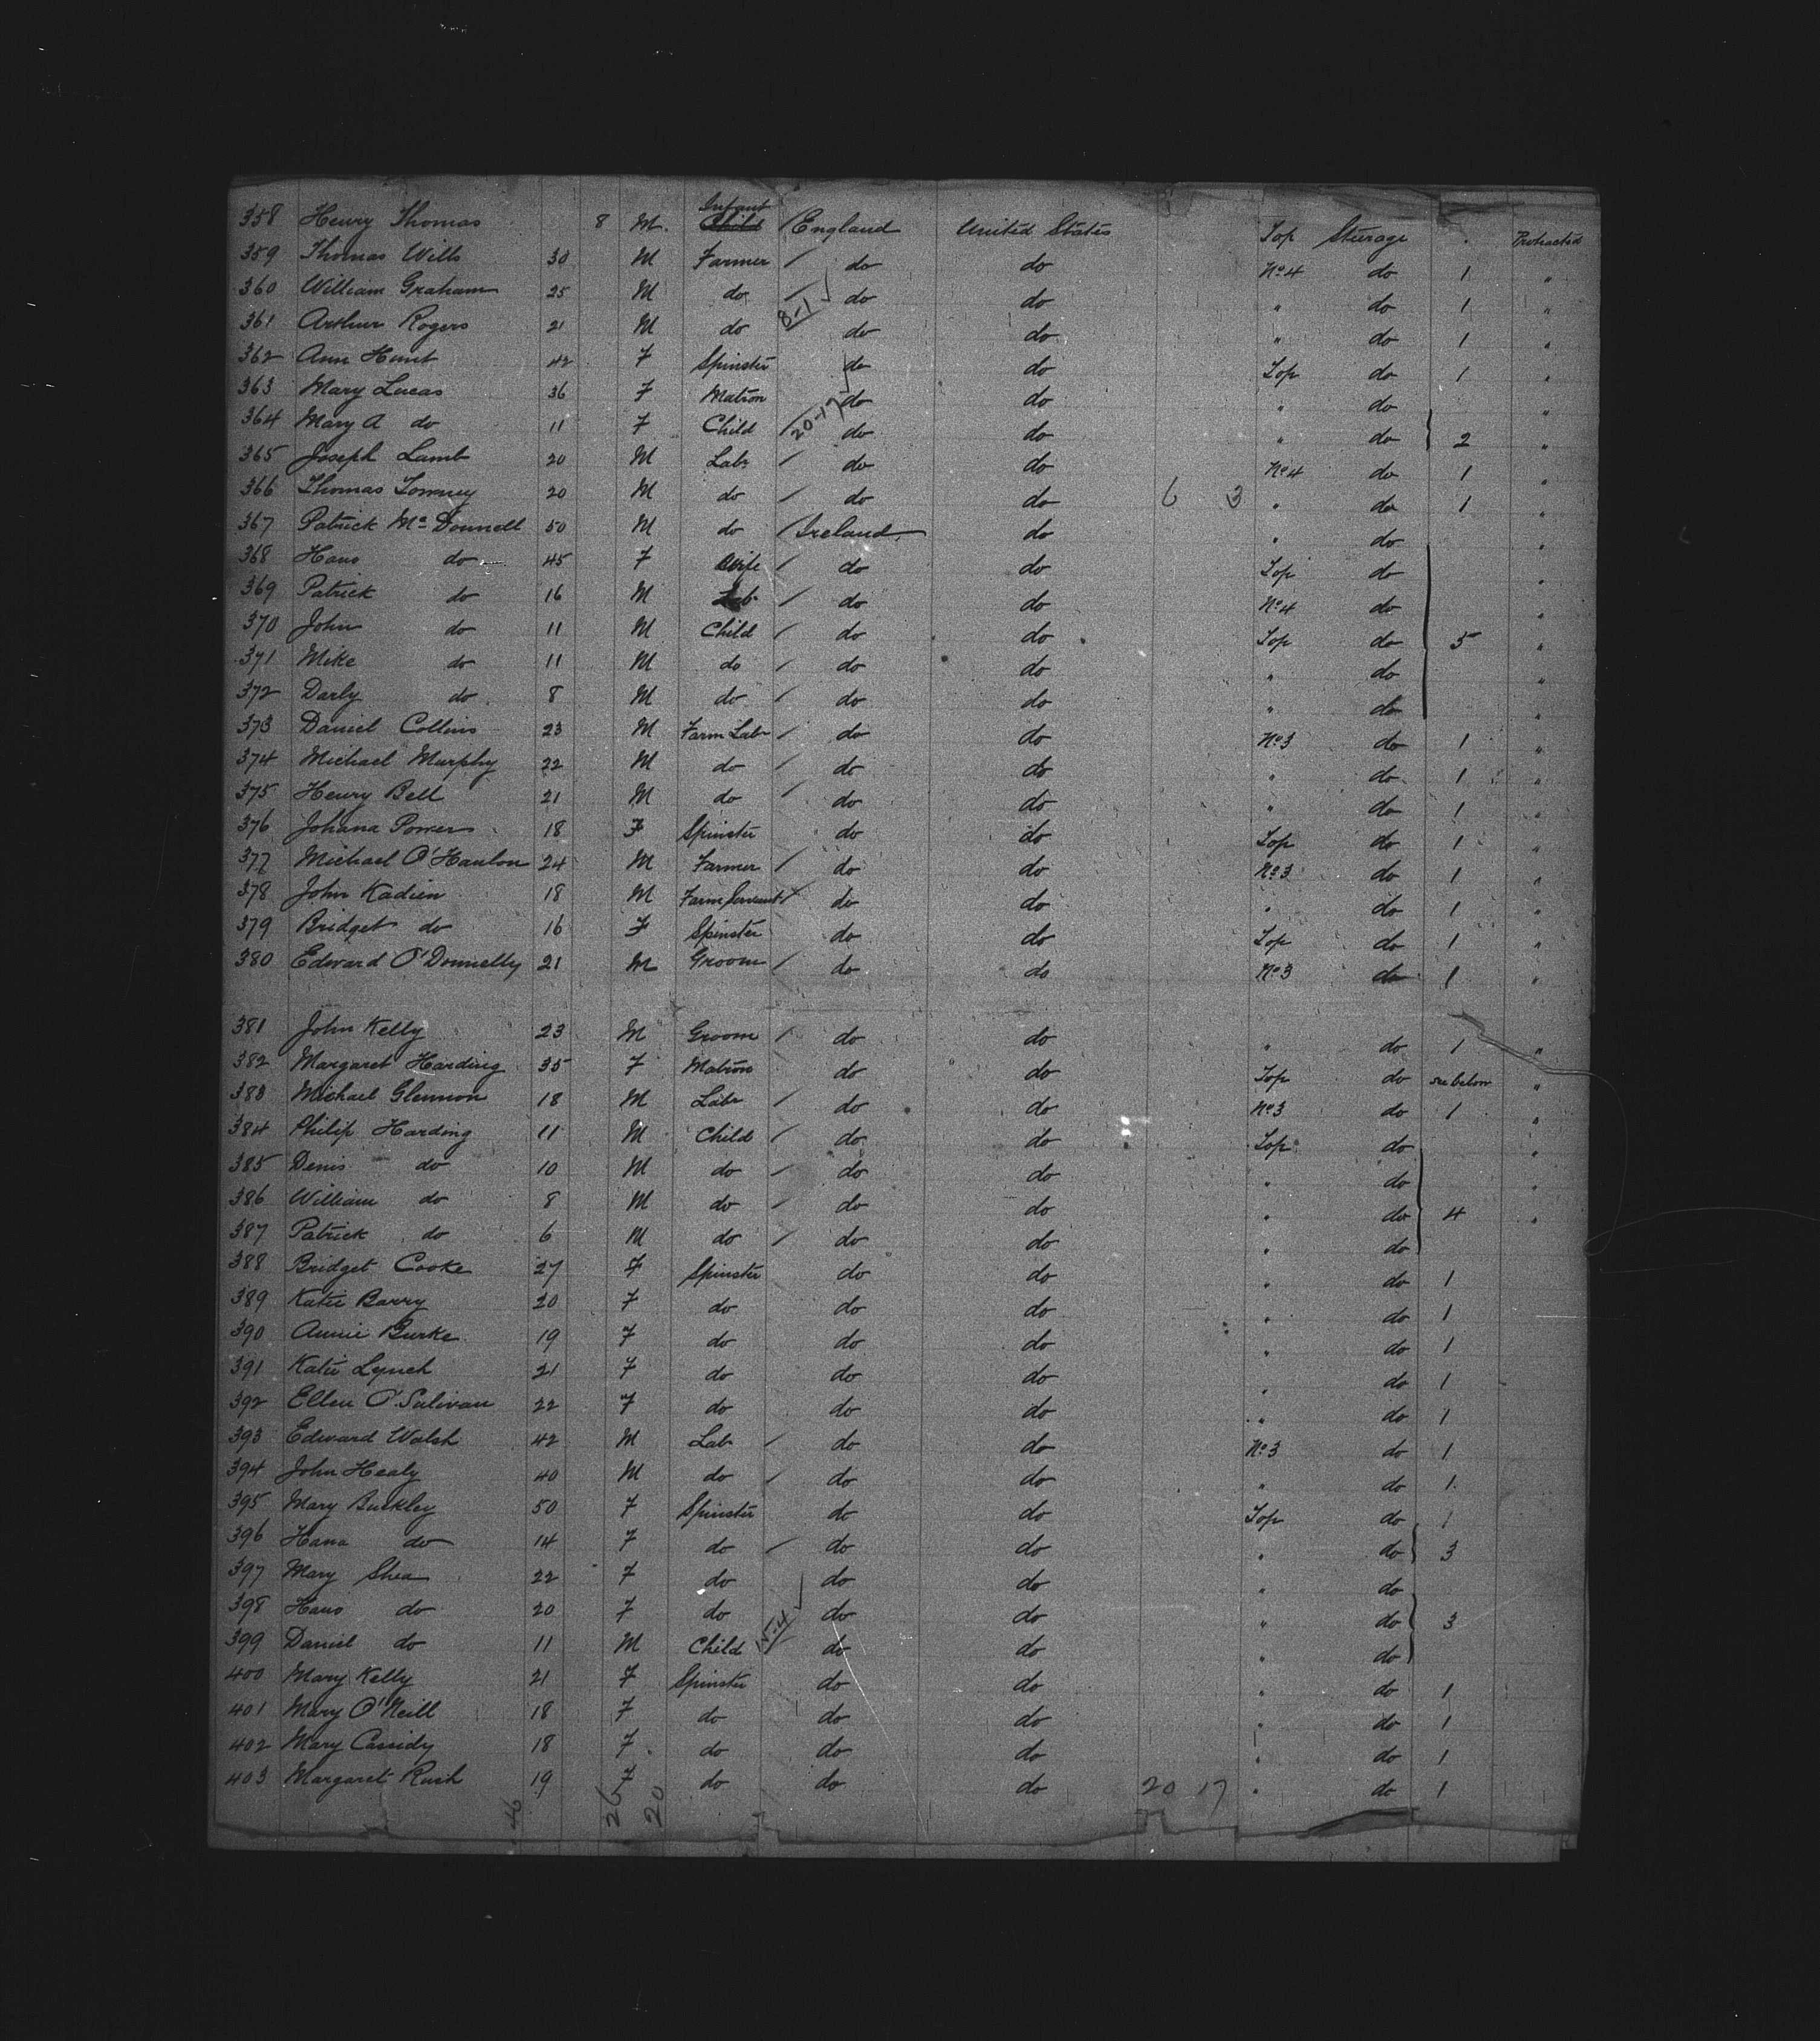 358 Henry Thomas 8 M. Infant Child England United States Top Steerage Protracted
359 Thomas Wills 30 M Farmer do do No 4 do 1 "
360 William Graham 25 M do do do " do 1 "
8-1
361 Arthur Rogers 21 M do do do " do 1 "
362 Ann Hunt 42 F Spinster do do Top do 1 "
363 Mary Lucas 36 F Matron do do " do "
364 Mary A do 11 F Child 20-17 do do " do 2 "
365 Joseph Lamb 20 M Labr do do No 4 do 1 "
366 Thomas 20 M do do do 6 3 " do 1 "
367 Patrick Mc Donnell 50 M do Ireland. do " do "
368 Hano do 45 F Wife do do Top do "
369 Patrick do 16 M Lab do do No 4 do "
370 John do 11 M Child do do Top do 5 "
371 Mike do 11 M do do do " do "
372 Darly do 8 M do do do " do "
373 Daniel Collins 23 M Farm Labr do do No 3 do 1 "
374 Michael Murphy 22 M do do do " do 1 "
375 Henry Bell 21 M do do do " do 1 "
376 Johana Power 18 F Spinster do do Top do 1 "
377 Michael O'Hanlon 24 M Farmer do do No 3 do 1 "
378 John Kadien 18 M Farm Servant do do " do 1 "
379 Bridget do 16 F Spinster do do Top do 1 "
380 Edward O'Donnelly 21 M Groom do do No 3 do 1 "
381 John Kelly 23 M Groom do do " do 1 "
382 Margaret Harding 35 F Matron do do Top do see below "
383 Michael Glennon 18 M Labr do do No 3 do 1 "
384 Philip Harding 11 M Child do do Top do "
385 Denis do 10 M do do do " do "
386 William do 8 M do do do " do 4 "
387 Patrick do 6 M do do do " do
388 Bridget Cooke 27 F Spinster do do " do 1
389 Katie Barry 20 F do do do " do 1
390 Annie Burke 19 F do do do " do 1
391 Katie Lynch 21 F do do do " do 1
392 Ellen O'Sulivan 22 F do do do " do 1
393 Edward Walsh 42 M Lab do do No 3 do 1
394 John Healy 40 M do do do " do 1
395 Mary Buckley 50 F Spinster do do Top do 1
396 Hana do 14 F do do do " do 3
397 Mary Shea 22 F do do do " do
398 Hano do 20 F do do do " do 3
399 Daniel do 11 M Child 15-4 do do " do
400 Mary Kelly 21 F Spinster do do " do 1
401 Mary O'Neill 18 F do do do " do 1
402 Mary Cassidy 18 F do do do " do 1
403 Margaret Rush 19 F do do do 20 17 " do 1
46 26 20